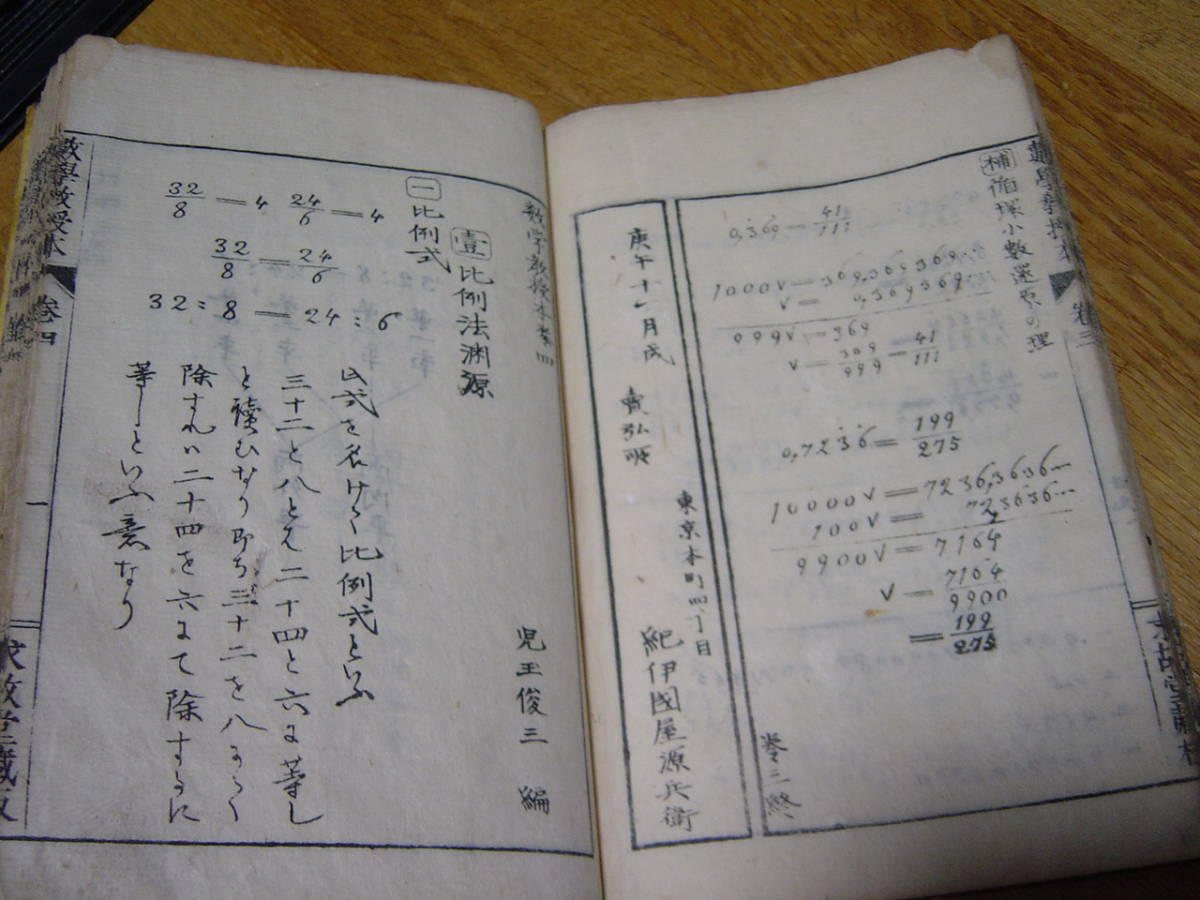 補 循環小数還原の理
0,3̇69̇=41/111
1000v=369,369369..
v=0,369369..
999v=369
v=369/999=41/111
0,723̇6̇=199/275
10000v=7236,3636...
100v=72,3636...
9900v=7164
v=7164/9900
=199/275
巻三終
庚午十一月成
賣弘所
東京本町四丁目
紀伊國屋源兵衛
数学教授本巻四
兒玉俊三 編
壹 比例法淵源
一 比例式
32/8=4 24/6=4
32/8=24/6
32:8=24:6
此式を名けて比例式といふ
三十二と八とは二十四と六に等し
と讀むなり即ち三十二を八にて
除すれハ二十四を六にて除するに
等しといふ意なり
數學教授本
巻四
一